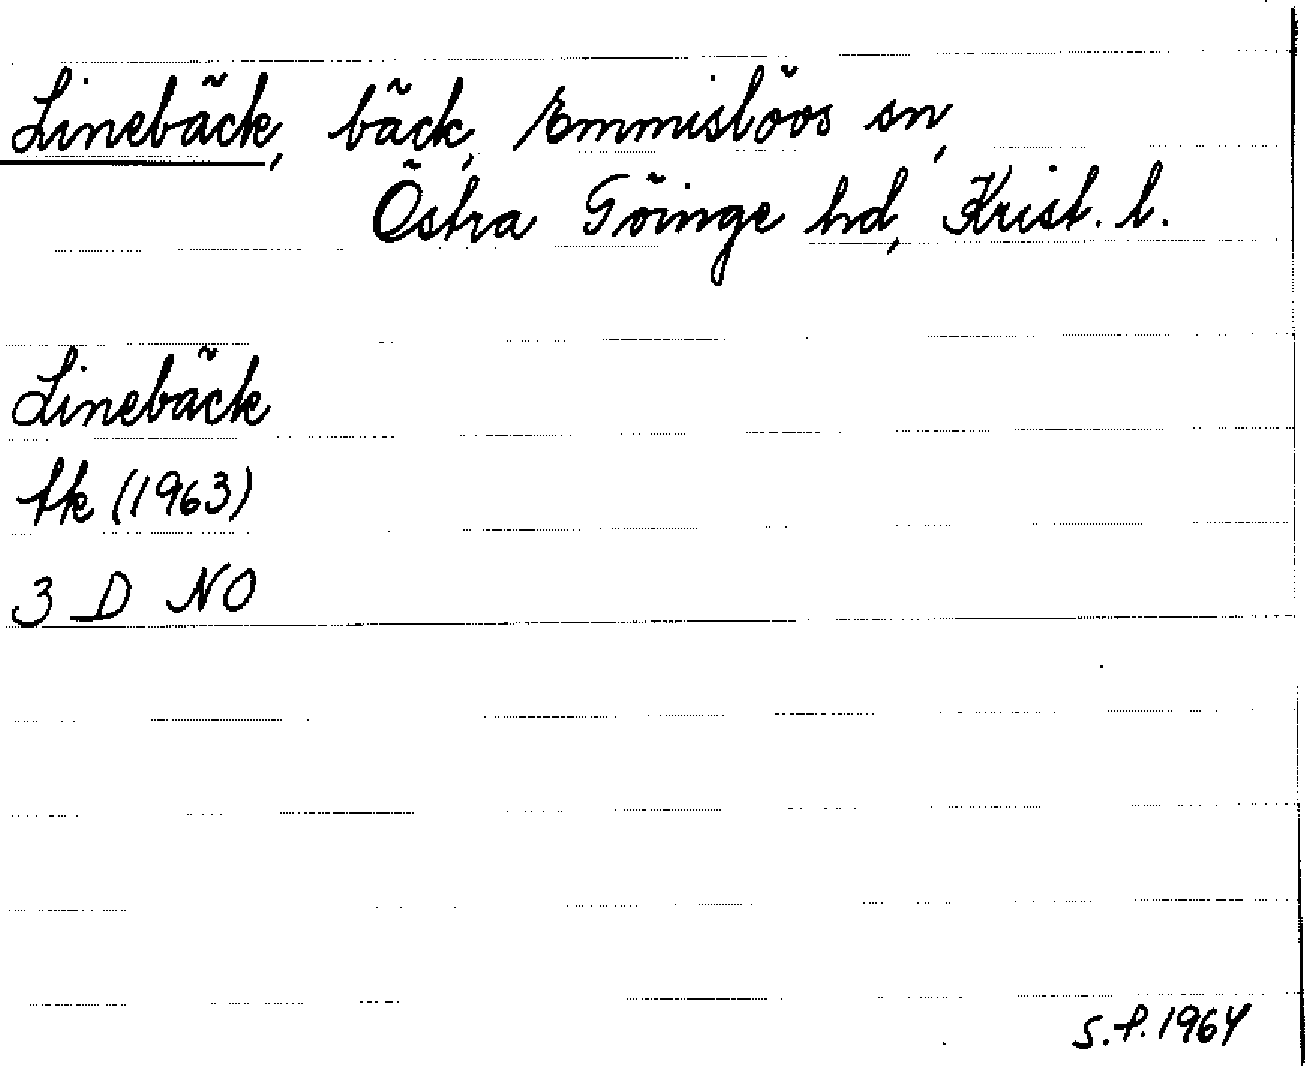 Linebäck, bäck, Emmislövs sn,
Östra Göinge hd, Krist. l.
Linebäck
fk (1963)
3 D NO
S.P. 1964